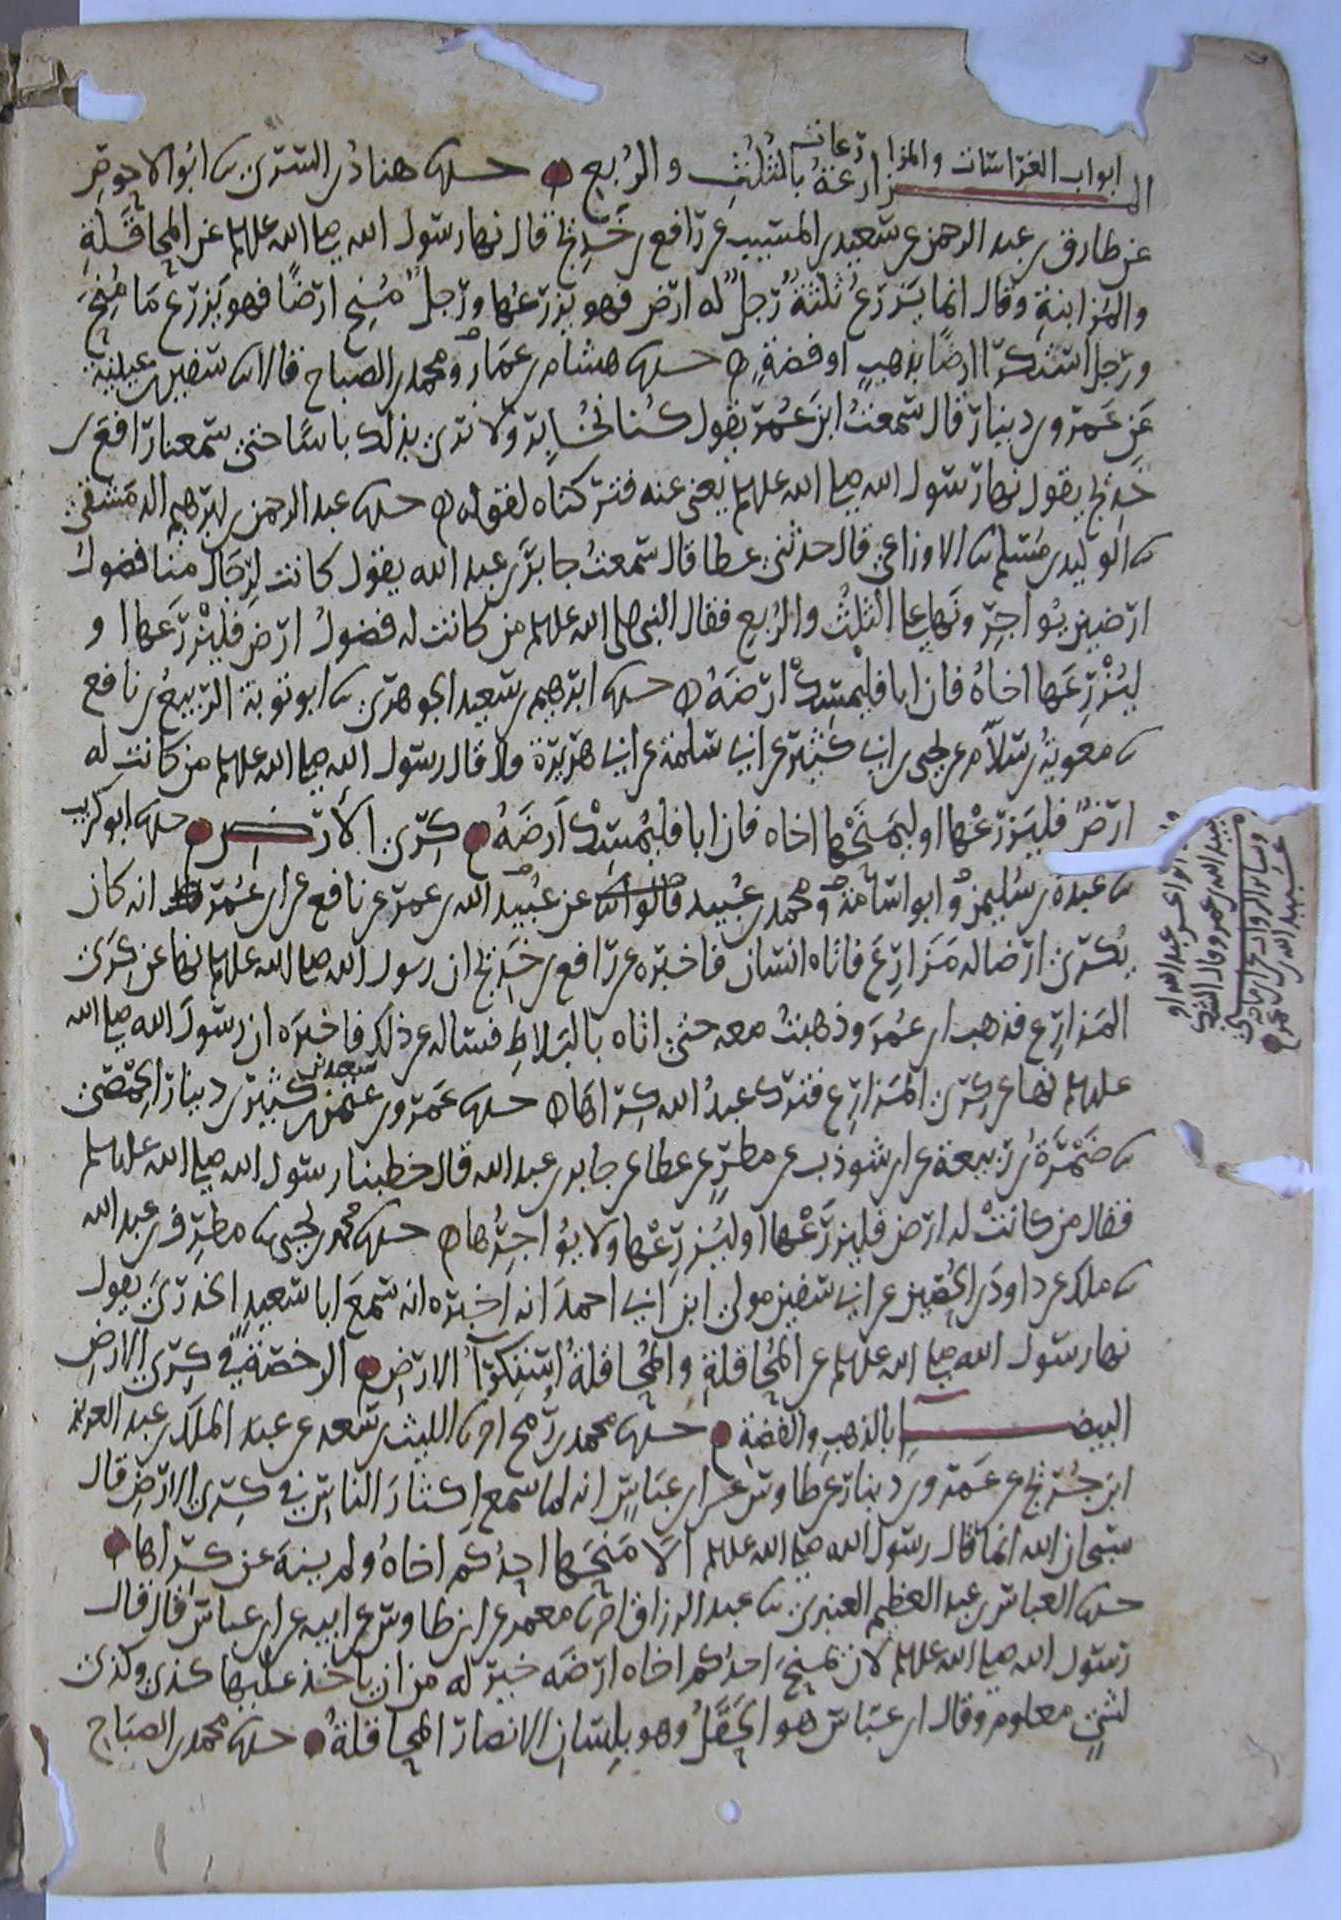 ابواب الغراسات والمزارعات
المزارعة بالثلث والربع حدثنا هناد بن السري نا ابو الاحوص
عن طارق بن عبد الرحمن عن سعيد بن المسيب عن رافع بن خديج قال نها رسول الله صلى الله عليه وسلم عن المحاقلة
والمزابنة وقال انما يزرع ثلثة رجل له ارض فهو يزرعها ورجل منح ارضا فهو يزرع ما منح
ورجل استكرا ارضا بذهب او فضة حدثنا هشام بن عمار ومحمد بن الصباح قالا نا سفين بن عيينة
عن عمرو بن دينار قال سمعت ابن عمر يقول كنا نخابر ولا نرى بذلك باسا حتى سمعنا رافع بن
خديج يقول نها رسول الله صلى الله عليه وسلم يعني عنه فتركناه لقوله حدثنا عبد الرحمن بن ابرهيم الدمشقي
نا الوليد بن مسلم نا الاوزاعي قال حدثني عطا قال سمعت جابر بن عبد الله يقول كانت لرجال منا فضول
ارضين يواجرونها على الثلث والربع فقال النبي صلى الله عليه وسلم من كانت له فضول ارض فليزرعها او
ليزرعها اخاه فان ابا فليمسك ارضه حدثنا ابرهيم بن سعيد الجوهري نا ابو توبة الربيع بن نافع
نا معوية بن سلام عن يحيى بن ابي كثير عن ابي سلمة عن ابي هريرة قال قال رسول الله صلى الله عليه وسلم من كانت له
ارض فليزرعها او ليمنحها اخاه فان ابا فليمسك ارضه كرى الارض حدثنا ابو كريب
نا عبدة بن سليمن وابو اسامة ومحمد بن عبيد قالوا نا عن عبيد الله بن عمر عن نافع عن ابن عمر انه كان
يكرى ارضا له مزارع فاتاه انسان فاخبره عن رافع بن خديج ان رسول الله صلى الله عليه وسلم نها عن كرى
المزارع فذهب ابن عمر وذهبت معه حتى اتاه بالبلاط فساله عن ذلك فاخبره ان رسول الله صلى الله
عليه وسلم نها عن كرى المزارع فترك عبد الله كراها حدثنا عمرو بن عثمن بن سعيد بن كثير بن دينار الحمصي
نا ضمرة بن ربيعة عن ابن شوذب عن مطر عن عطا عن جابر بن عبد الله قال خطبنا رسول الله صلى الله عليه وسلم
فقال من كانت له ارض فليزرعها او ليزرعها ولا يواجرها حدثنا محمد بن يحيى نا مطرف بن عبد الله
نا ملك عن داود بن الحصين عن ابي سفين مولى ابن ابي احمد انه اخبره انه سمع ابا سعيد الخدري يقول
نها رسول الله صلى الله عليه وسلم عن المحاقلة والمحاقلة استكرا الارض الرخصة في كرى الارض
البيضا بالذهب والفضة حدثنا محمد بن رمح انا الليث بن سعد عن عبد الملك بن عبد العزيز
ابن جريج عن عمرو بن دينار عن طاوس عن ابن عباس انه لما سمع اكثار الناس في كرى الارض قال
سبحان الله انما قال رسول الله صلى الله عليه وسلم الا منحها احدكم اخاه ولم ينه عن كراها
حدثنا العباس بن عبد العظيم العنبري نا عبد الرزاق انا معمر عن ابن طاوس عن ابيه عن ابن عباس قال قال
رسول الله صلى الله عليه وسلم لان يمنح احدكم اخاه ارضه خير له من ان ياخذ عليها كذى وكذى
لشي معلوم وقال ابن عباس هو الحقل وهو بلسان الانصار المحاقلة حدثنا محمد بن الصباح